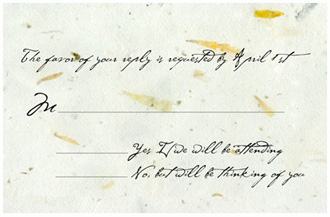 The favor of your reply is requested by April 1st
M
Yes I/we will be attending
No, but will be thinking of you